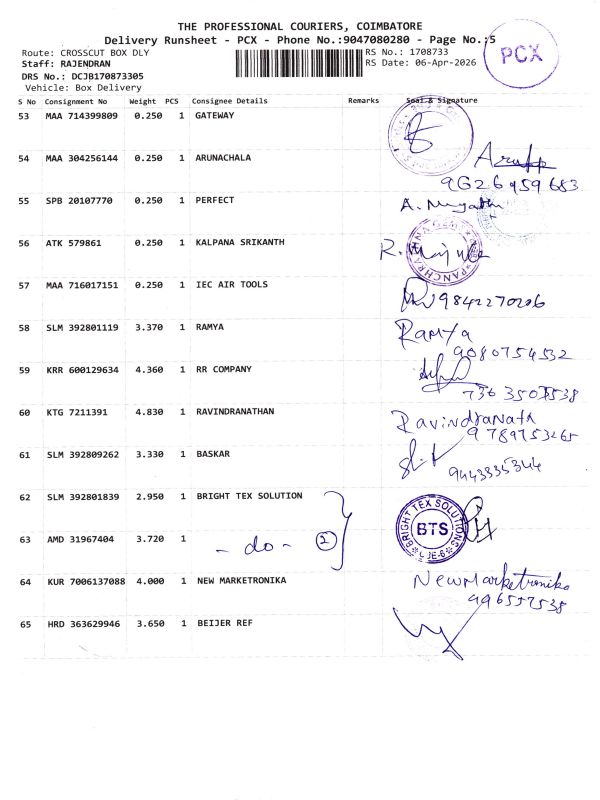 THE PROFESSIONAL COURIERS, COIMBATORE
Delivery Runsheet - PCX - Phone No.:9047080280 - Page No.:5
Route: CROSSCUT BOX DLY RS No.: 1708733
Staff: RAJENDRAN RS Date: 06-Apr-2026
DRS No.: DCJB170873305
Vehicle: Box Delivery
PCX
S No Consignment No Weight PCS Consignee Details Remarks Seal & Signature
53 MAA 714399809 0.250 1 GATEWAY
54 MAA 304256144 0.250 1 ARUNACHALA
55 SPB 20107770 0.250 1 PERFECT
56 ATK 579861 0.250 1 KALPANA SRIKANTH
57 MAA 716017151 0.250 1 IEC AIR TOOLS
58 SLM 392801119 3.370 1 RAMYA Ramya
9080754532
59 KRR 600129634 4.360 1 RR COMPANY
60 KTG 7211391 4.830 1 RAVINDRANATHAN Ravindranath
9789753265
61 SLM 392809262 3.330 1 BASKAR
9443335344
62 SLM 392801839 2.950 1 BRIGHT TEX SOLUTION BRIGHT TEX SOLUTIONS BTS
63 AMD 31967404 3.720 1 - do - 2
64 KUR 7006137088 4.000 1 NEW MARKETRONIKA New Marketronika
996557538
65 HRD 363629946 3.650 1 BEIJER REF